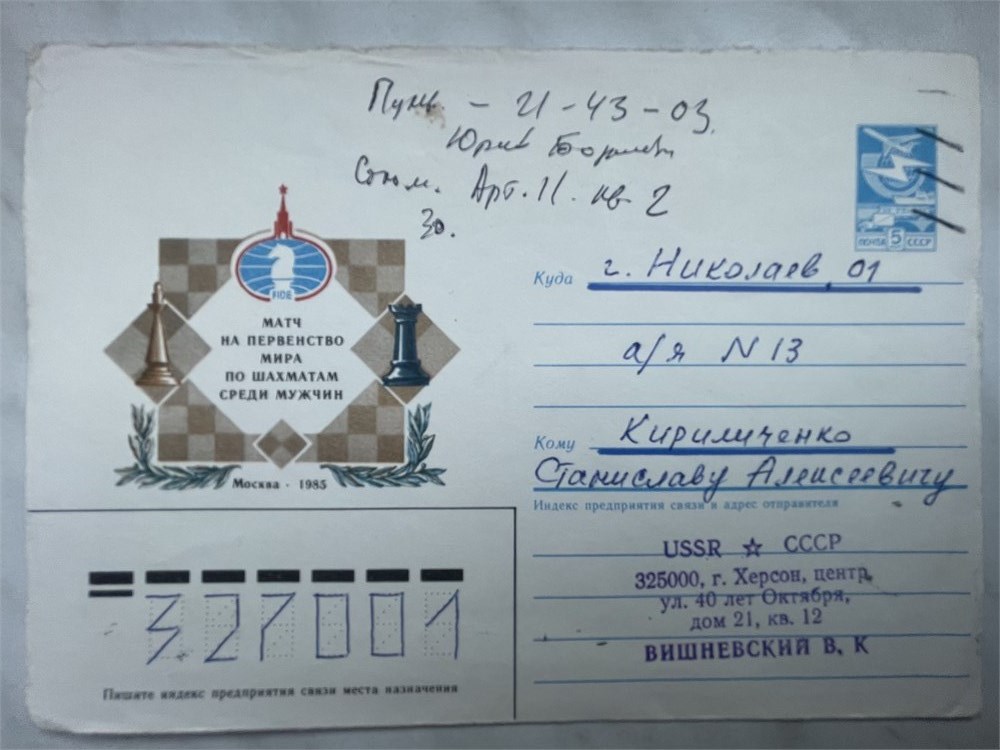 - 21-43-03
Юрий
Арт. 11. кв. 2
30.
ПОЧТА 5 СССР
FIDE
МАТЧ
НА ПЕРВЕНСТВО
МИРА
ПО ШАХМАТАМ
СРЕДИ МУЖЧИН
Москва · 1985
Куда г. Николаев 01
а/я N 13
Кому Кириличенко
Станиславу Алексеевичу
Индекс предприятия связи и адрес отправителя
USSR ☆ СССР
325000, г. Херсон, центр,
ул. 40 лет Октября,
дом 21, кв. 12
ВИШНЕВСКИЙ В. К
327001
Пишите индекс предприятия связи места назначения